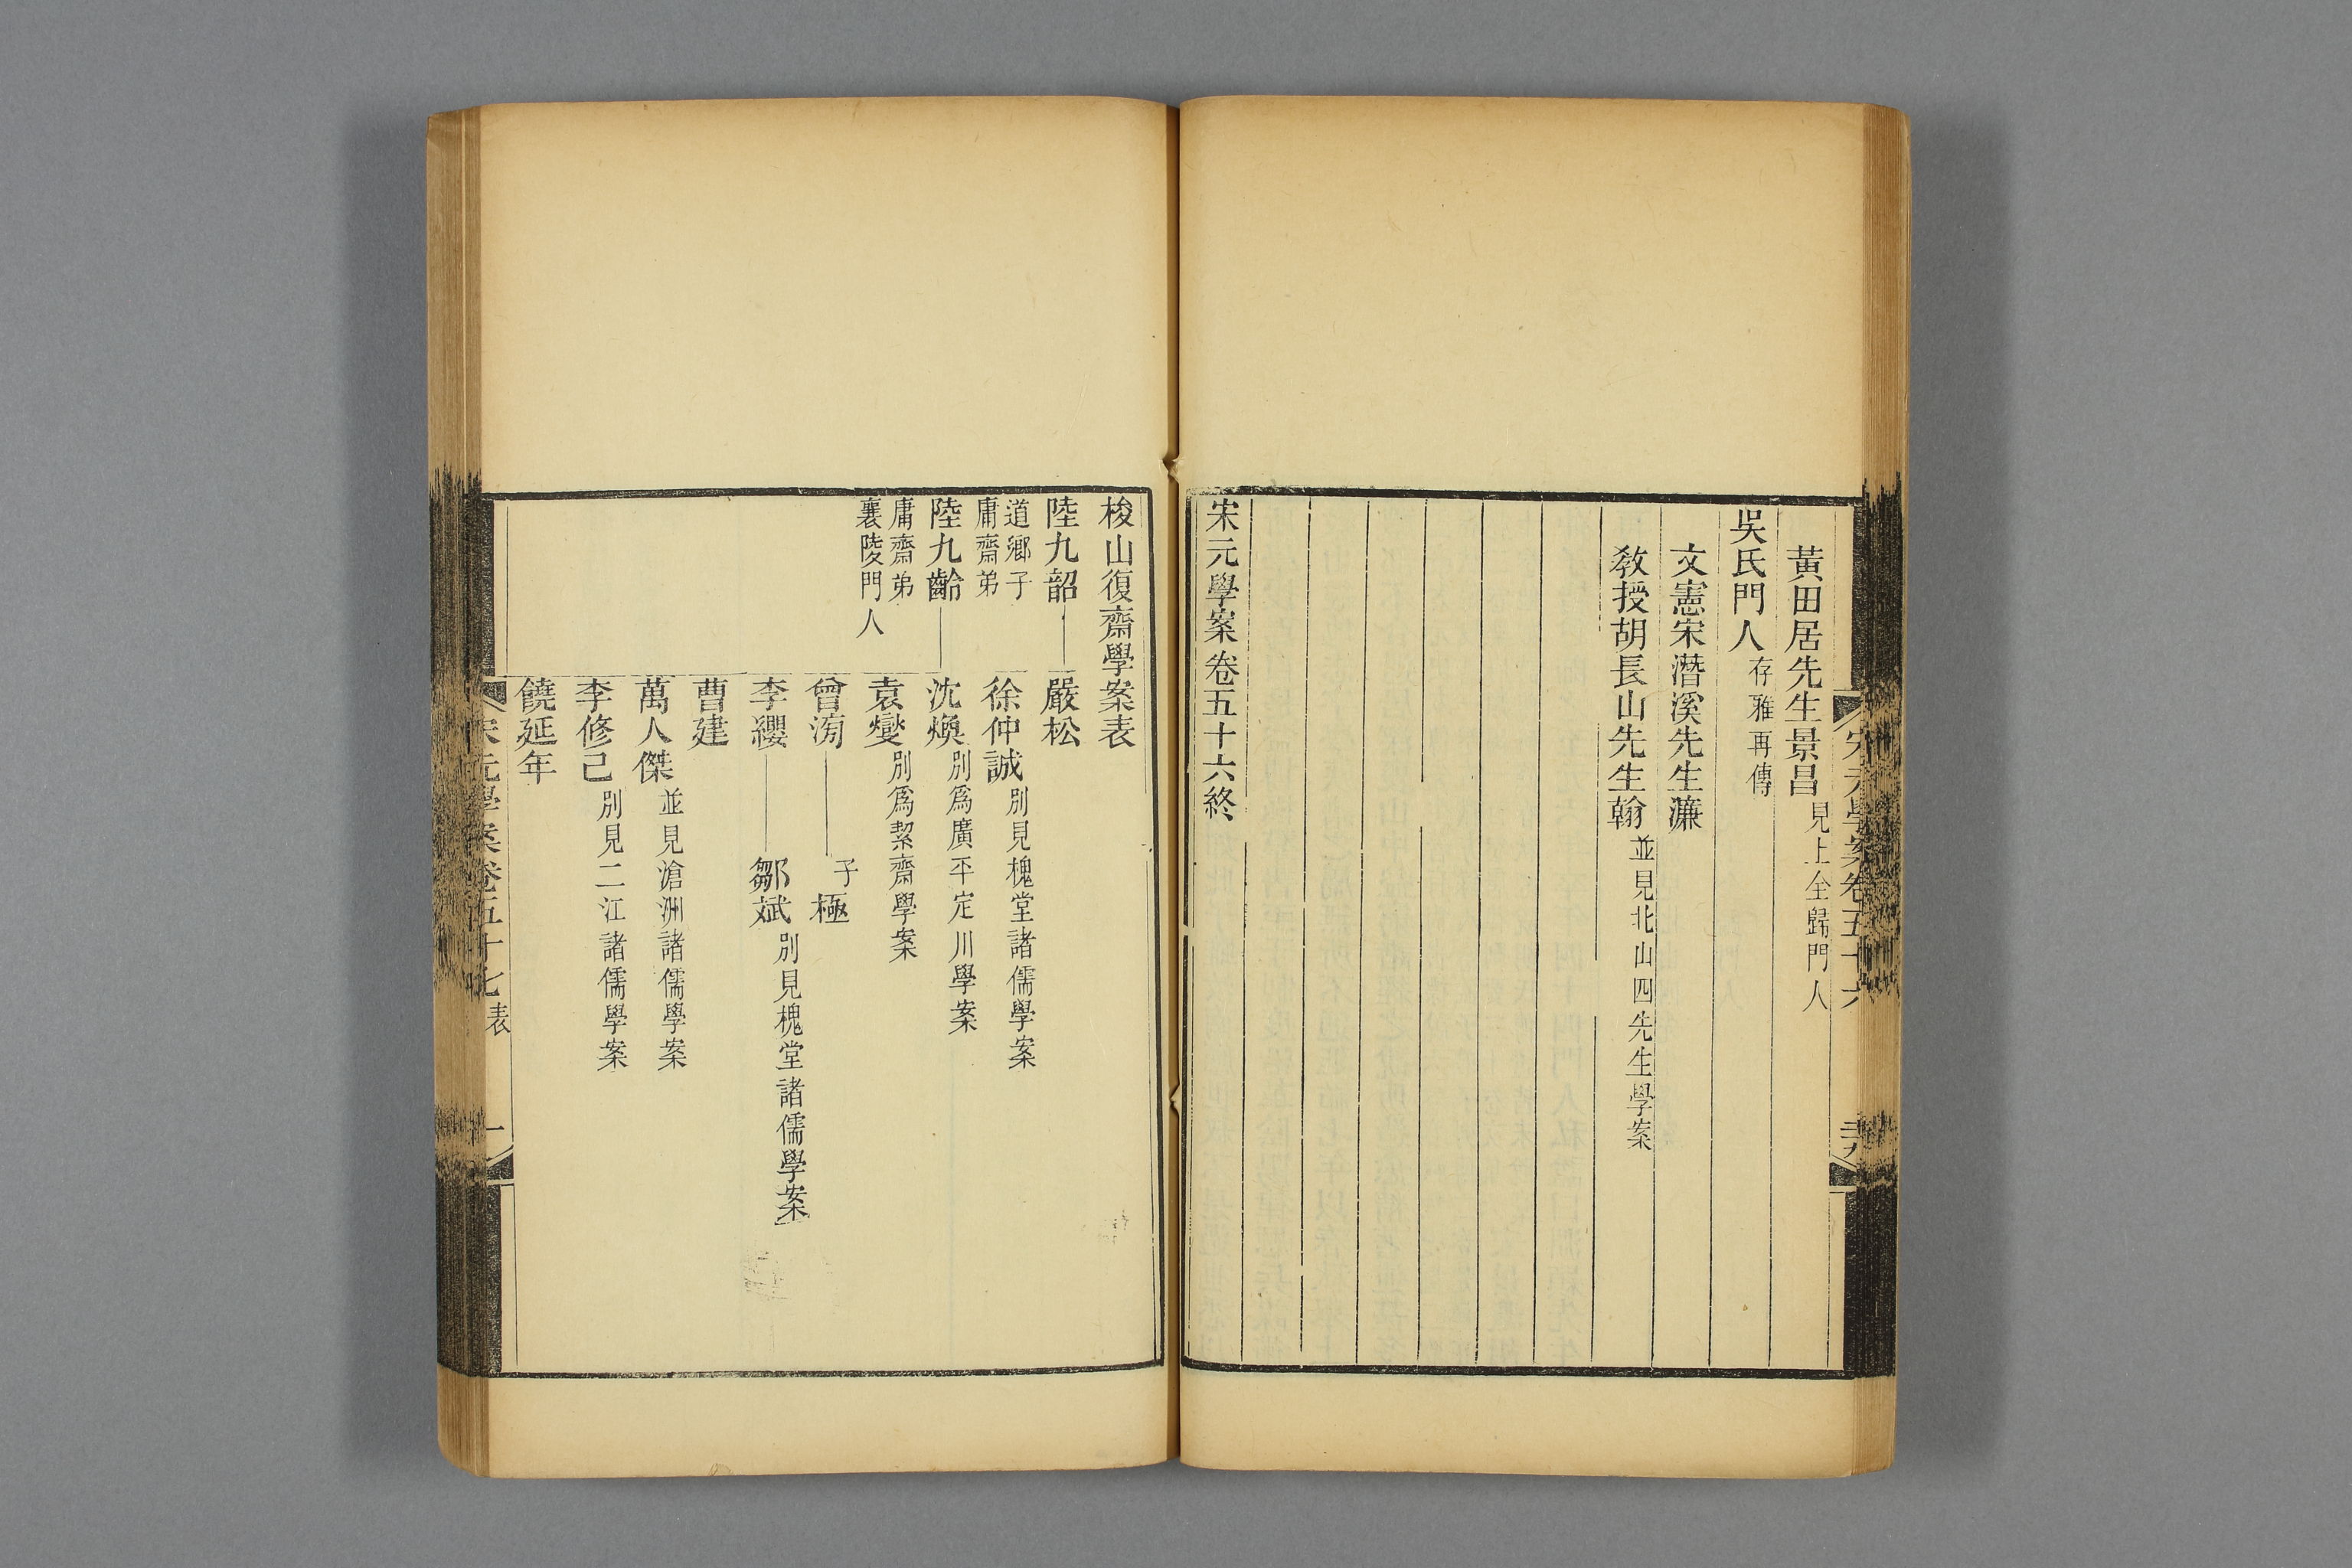 黃田居先生景昌見上全歸門人
吳氏門人存雅再傳
文憲宋潛溪先生濂
敎授胡長山先生翰並見北山四先生學案
宋元學案卷五十六終
宋元學案卷五十六
梭山復齋學案表
陸九韶
嚴松
道鄉子
庸齋弟
徐仲誠別見槐堂諸儒學案
陸九齡
沈煥別爲廣平定川學案
庸齋弟
襄陵門人
袁燮別爲絜齋學案
曾滂
子極
李纓
鄒斌別見槐堂諸儒學案
曹建
萬人傑並見滄洲諸儒學案
李修己別見二江諸儒學案
饒延年
宋元學案卷五十七表
一